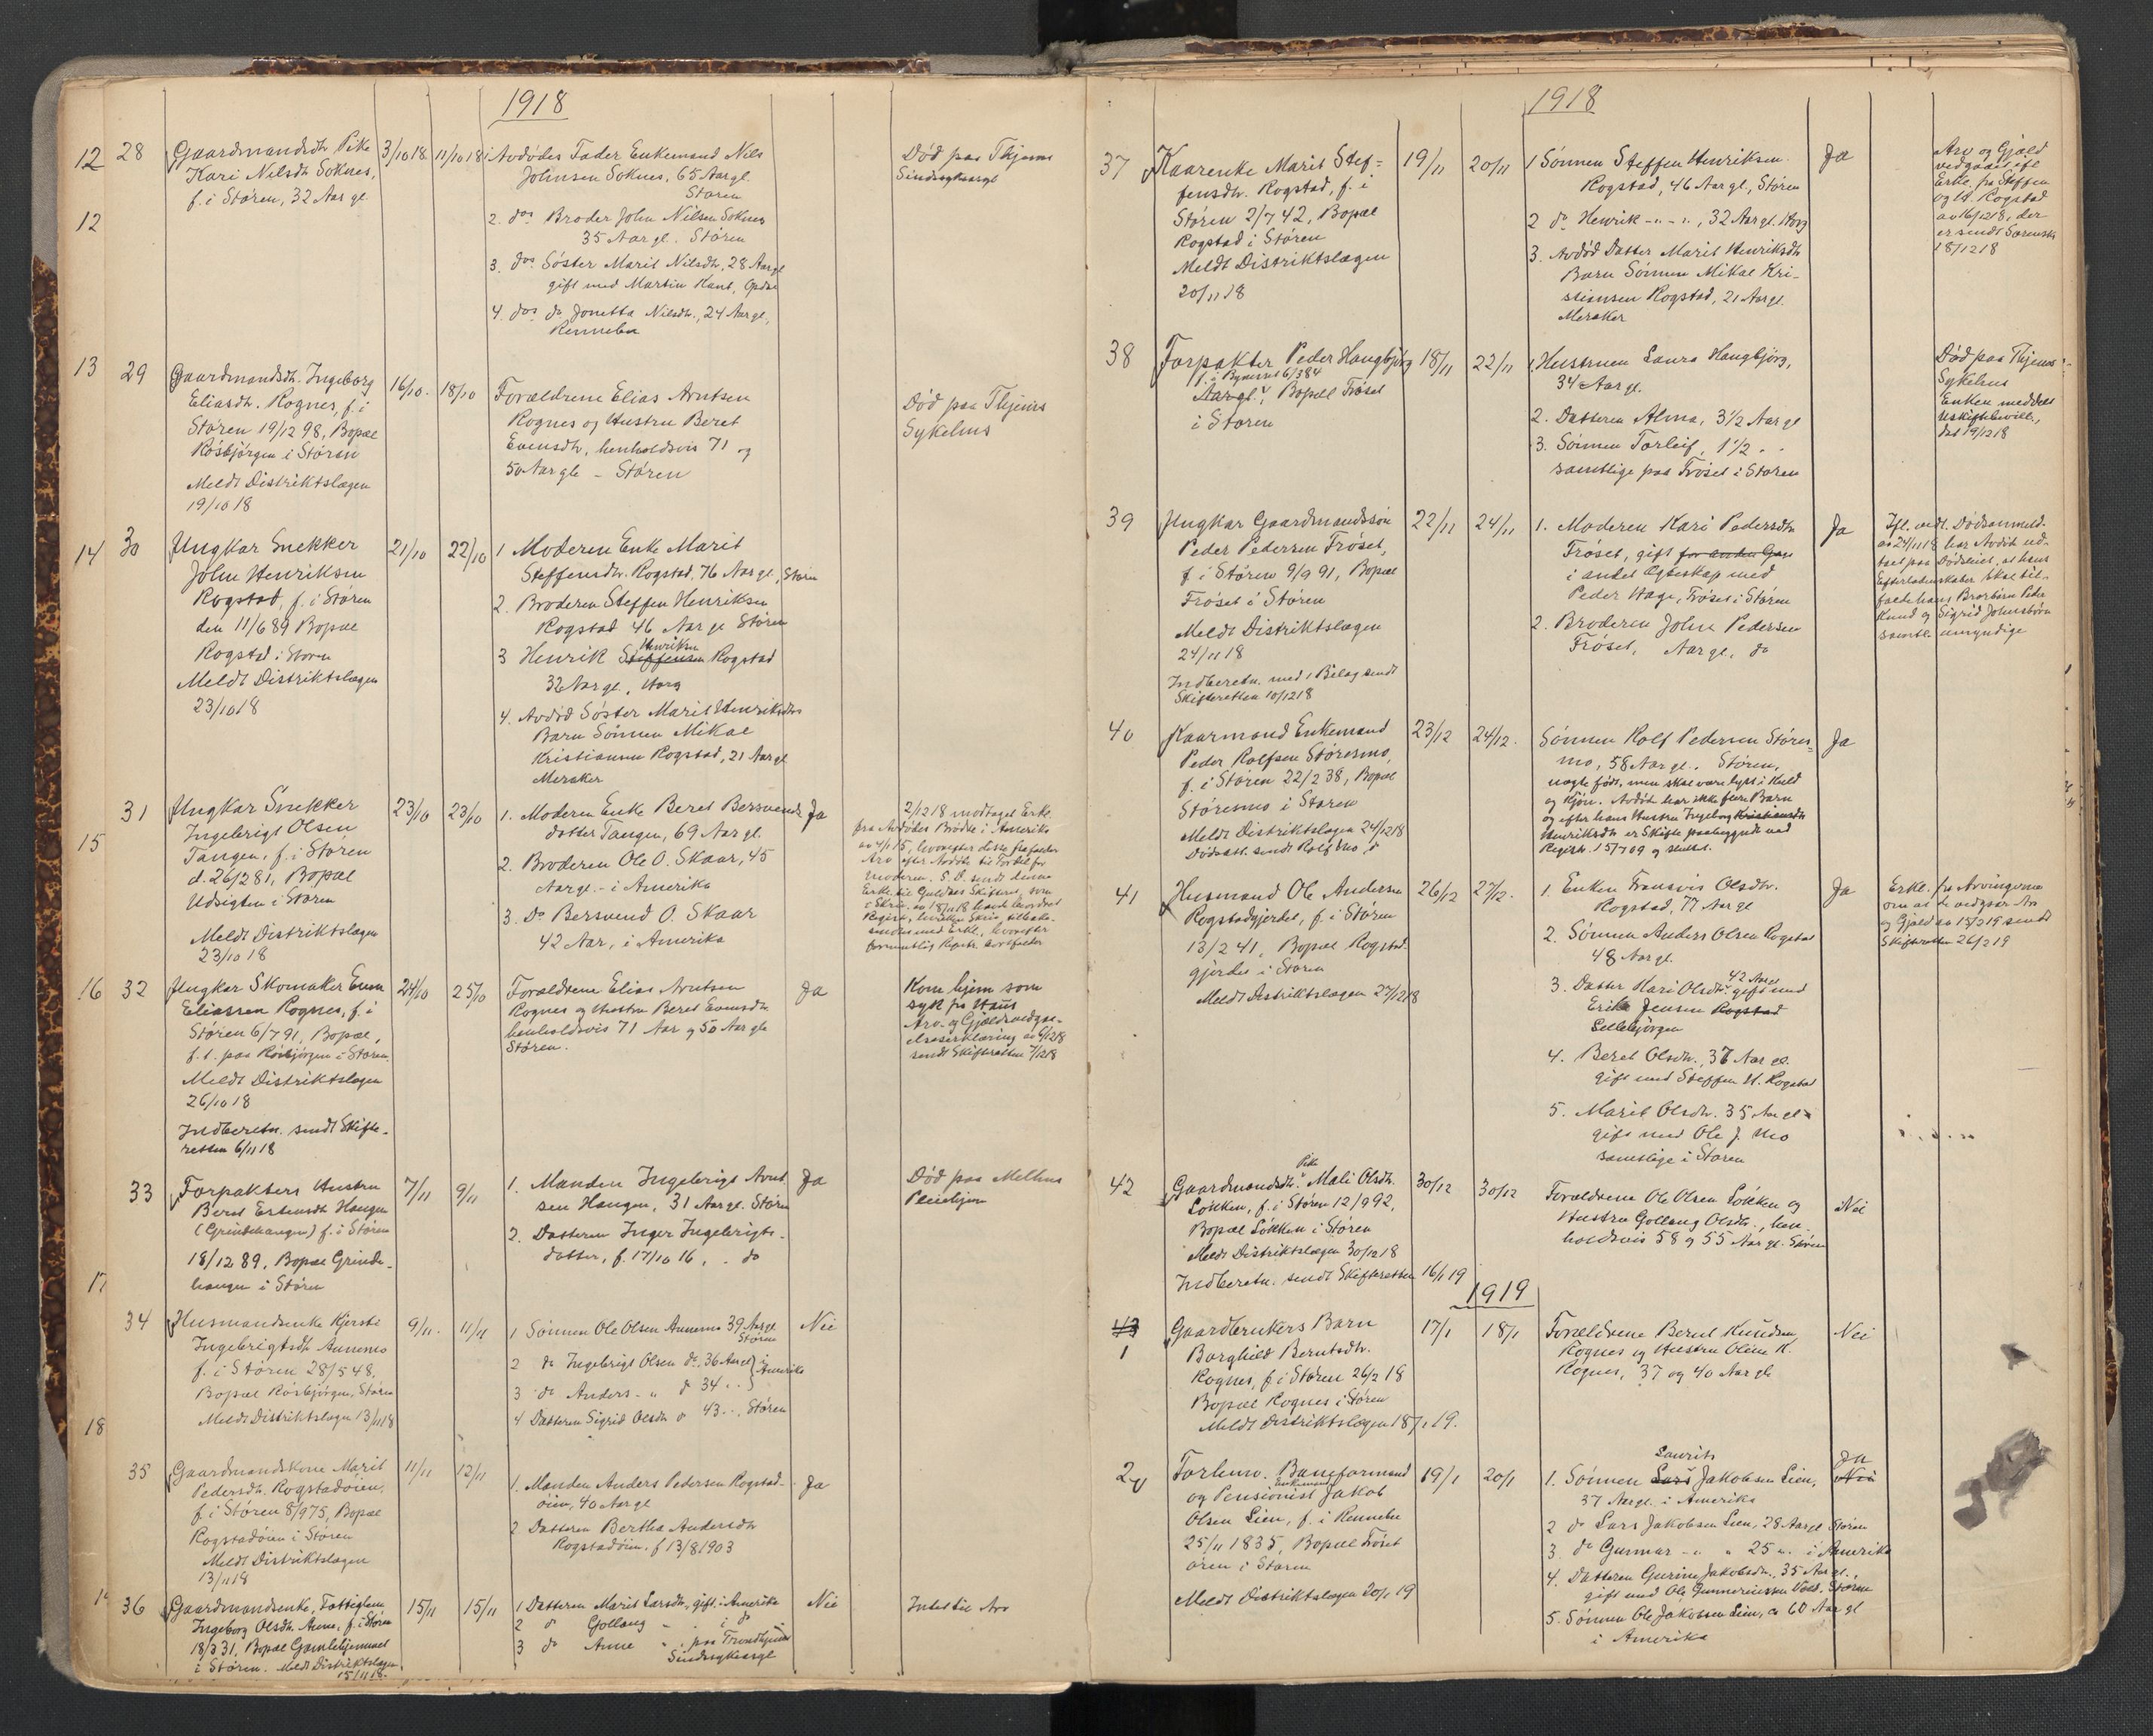 1918
12 28 Gaardmandsdtr. Pike 3/10 18 11/10 18 1 Avdødes Fader Enkemand Nils Død paa Thjems
Kari Nilsdtr. Soknes, Johnsen Soknes, 65 Aar gl. Sindssykeasyl
f. i Støren, 32 Aar gl. Støren
12 2. dos Broder John Nilsen Soknes
35 Aar gl. Støren
3. dos Søster Marit Nilsdtr., 28 Aar gl
gift med Martin
4. dos do Jonetta Nilsdtr., 24 Aar gl.,
Rennebu
13 29 Gaardmandsdtr. Ingeborg 16/10. 18/10 Forældrene Elias Arntsen Død paa Thjems
Eliasdtr. Rognes, f. i Rognes og Hustru Beret Sykehus
Støren 19/12 98, Bopæl Evensdtr., henholdsvis 71 og
Røsbjørgen i Støren 50 Aar gle – Støren
Meldt Distriktslægen
19/10 18
14 30 Ungkar Snekker 21/10 22/10 1 Moderen Enke Marit
John Henriksen Steffensdtr. Rogstad, 76 Aar gl., Støren
Rogstad, f. i Støren 2. Broderen Steffen Henriksen
den 11/6 89 Bopæl Rogstad 46 Aar gl Støren
Rogstad i Støren 3 Henrik Steffensen Henriksen Rogstad
Meldt Distriktslægen 32 Aar gl., Horg
23/10 18 4. Avdød Søster Marit Henriksdtrs
Barn Sønnen Mikal
Kristiansen Rogstad, 21 Aar gl
Meraker
31 Ungkar Snekker 23/10 23/10 1. Moderen Enke Beret Bersvends- Ja 2/12 18 modtaget Erkl.
15 Ingebrigt Olsen datter Tangen, 69 Aar gl. fra Avdødes Brødre i Amerika
Tangen, f. i Støren 2. Broderen Ole O. Skaar, 45
d. 26/2 81, Bopæl Aar gl. – i Amerika
Udsigten i Støren 3. Do Bersvend O. Skaar
Meldt Distriktslægen 42 Aar, i Amerika
23/10 18
16 32 Ungkar Skomaker Even 24/10 25/10 Forældrene Elias Arntsen Ja Kom hjem som
Eliassen Rognes, f. i Rognes og Hustru Beret Evensdtr. syk fra
Støren 6/7 91, Bopæl, henholdsvis 71 Aar og 50 Aar gle Arv- og Gjældsvedgaa-
f. t. paa Røsbjørgen i Støren Støren. elseserklæring av 6/12 18
Meldt Distriktslægen sendt Skifteretten 7/12 18
26/10 18
Indberetn. sendt Skifte-
retten 6/11 18
33 Forpakters Hustru 7/11 9/11 1. Manden Ingebrigt Arnt- Ja Død paa Melhus
Beret Estensdtr. Haugen sen Haugen, 31 Aar gl. Støren Pleiehjem
(Grindehaugen) f. i Støren 2. Datteren Inger Ingebrigts-
18/12 89, Bopæl Grinde- datter, f. 17/10 16, . do
17 haugen i Støren
34 Husmandsenke Kjersti 9/11. 11/11 1 Sønnen Ole Olsen Aunemo 39 Aar gl. Støren Nei
Ingebrigtsdtr. Aunemo 2 do Ingebrigt Olsen do. 36 Aar gl } i Amerika
f. i Støren 28/5 48, 3 do Anders – " do 34 . . }
Bopæl Røsbjørgen, Støren 4 Datteren Sigrid Olsdtr. do 43 . ., Støren
18 Meldt Distriktslægen 13/11 18
35 Gaardmandskone Marit 11/11 12/11 1. Manden Anders Pedersen Rogstad- Ja
Pedersdtr. Rogstadøien, øien, 40 Aar gl
f. i Støren 8/9 75, Bopæl 2 Datteren Bertha Andersdtr.
Rogstadøien i Støren Rogstadøien, f 13/8 1903
Meldt Distriktslægen
13/11 18
36 Gaardmandsenke, Fattiglem 15/11 15/11 1 Datteren Marit Larsdtr., gift. i Amerika Nei Intet til Arv
Ingeborg Olsdtr. Aune, f. i Støren 2 do Gollaug – . i do
18/3 31, Bopæl Gamlehjemmet 3 do Anne " . . paa Trondhjems
i Støren. Meldt Distriktslægen Sindssykeasyl
15/11 18.
1918
37 Kaarenke Marit Stef- 19/11 20/11 1 Sønnen Steffen Henriksen Ja Arv og Gjæld
fensdtr. Rogstad, f. i Rogstad, 46 Aar gl., Støren vedgaaet ifl
Støren 2/7 42, Bopæl 2 do Henrik –"–"., 32 Aar gl. Horg Erkl. fra Steffen
Rogstad i Støren 3. Avdød Datter Marit Henriksdtr. og H. Rogstad
Meldt Distriktslægen Barn Sønnen Mikal Kri- av 16/12 18, der
20/11 18 stiansen Rogstad, 21 Aar gl. er sendt Sorenskr.
Meraker 18/12 18
38 Forpakter Peder Haugbjørg 18/11 22/11 1. Hustruen Laura Haugbjørg, Død paa Thjems
f. i Byneset 6/3 84 34 Aar gl. Sykehus
Aar gl., Bopæl Frøset 2. Datteren Alma, 3½ Aar gl Enken meddelt
i Støren 3. Sønnen Torleif, 1½ . . Uskiftebevill.,
samtlige paa Frøset i Støren dat 19/12 18
39 Ungkar Gaardmandssøn 22/11 24/11 1. Moderen Kari Pedersdtr. Ja Ifl. vedl. Dødsanmeld.
Peder Pedersen Frøset, Frøset, gift for anden Gang av 24/11 18 har Avdøde ud-
f i Støren 9/9 91, Bopæl i andet Ægteskap med talt paa Dødsleiet, at hans
Frøset i Støren Peder Hage, Frøset i Støren Efterladenskaber skal til-
Meldt Distriktslægen 2. Broderen John Pedersen falde hans Brorbørn Peder
24/11 18 Frøset, Aar gl., do Knud og Sigrid Johnsbørn
Indberetn. med 1 Bilag sendt samtl. umyndige
Skifteretten 10/12 18
40 Kaarmand Enkemand 23/12 24/12. Sønnen Rolf Pedersen Støres- Ja
Peder Rolfsen Støresmo, mo, 58 Aar gl., Støren,
f. i Støren 22/2 38, Bopæl uægte født, men skal være lyst i Kuld
Støresmo i Støren og Kjøn. Avdøde har ikke flere Barn
Meldt Distriktslægen 24/12 18 og efter hans Hustru Ingeborg Kristiansdtr.
Dødsatt. sendt Rolf Mo, do Henriksdtr er Skifte paabegyndt ved
Registr. 15/7 09 og sluttet.
41 Husmand Ole Andersen 26/12 27/12. 1. Enken Olsdtr. Ja Erkl. fra Arvingerne
Rogstadgjerdet, f. i Støren Rogstad, 77 Aar gl om at de vedgaar Arv
13/2 41, Bopæl Rogstad- 2. Sønnen Anders Olsen Rogstad og Gjæld av 15/2 19 sendt
gjerdet i Støren 48 Aar gl. Skifteretten 26/2 19
Meldt Distriktslægen 27/12 18 3. Datter Kari Olsdtr. 42 Aar gl gift med
Erik Jensen Rogstad
Lillebjørgen
4. Beret Olsdtr., 37 Aar gl.
gift med Steffen H. Rogstad
5. Marit Olsdtr. 35 Aar gl.
gift med Ole J. Mo
samtlige i Støren
42 Gaardmandsdtr. Pike Mali Olsdtr. 30/12 30/12 Forældrene Ole Olsen Løkken og Nei
Løkken, f. i Støren 12/9 92, Hustru Gollaug Olsdtr., hen-
Bopæl Løkken i Støren holdsvis 58 og 55 Aar gl. Støren
Meldt Distriktslægen 30/12 18
Indberetn. sendt Skifteretten 16/1 19
1919
43 Gaardbrukers Barn 17/1 18/1 Forældrene Bernt Knudsen Nei
1 Borghild Berntsdtr. Rognes og Hustru Oline K.
Rognes, f i Støren 26/2 18 Rognes, 37 og 40 Aar gle
Bopæl Rognes i Støren
Meldt Distriktslægen 18/1 19.
2 Forhenv. Baneformand 19/1 20/1 1. Sønnen Lars Laurits Jakobsen Lien, Ja Nei
og Pensionist Enkemand Jakob 37 Aar gl. i Amerika
Olsen Lien, f. i Rennebu 2 do Lars Jakobsen Lien, 28 Aar gl Støren
25/11 1835, Bopæl Frøset- 3. do Gunnar –" " 25 ". i Amerika
øren i Støren 4. Datteren Gurine Jakobsdtr., 35 Aar gl.,
Meldt Distriktslægen 20/1 19 gift med Ole Vold, Støren
5. Sønnen Ole Jakobsen Lien, ca 60 Aar gl
i Amerika